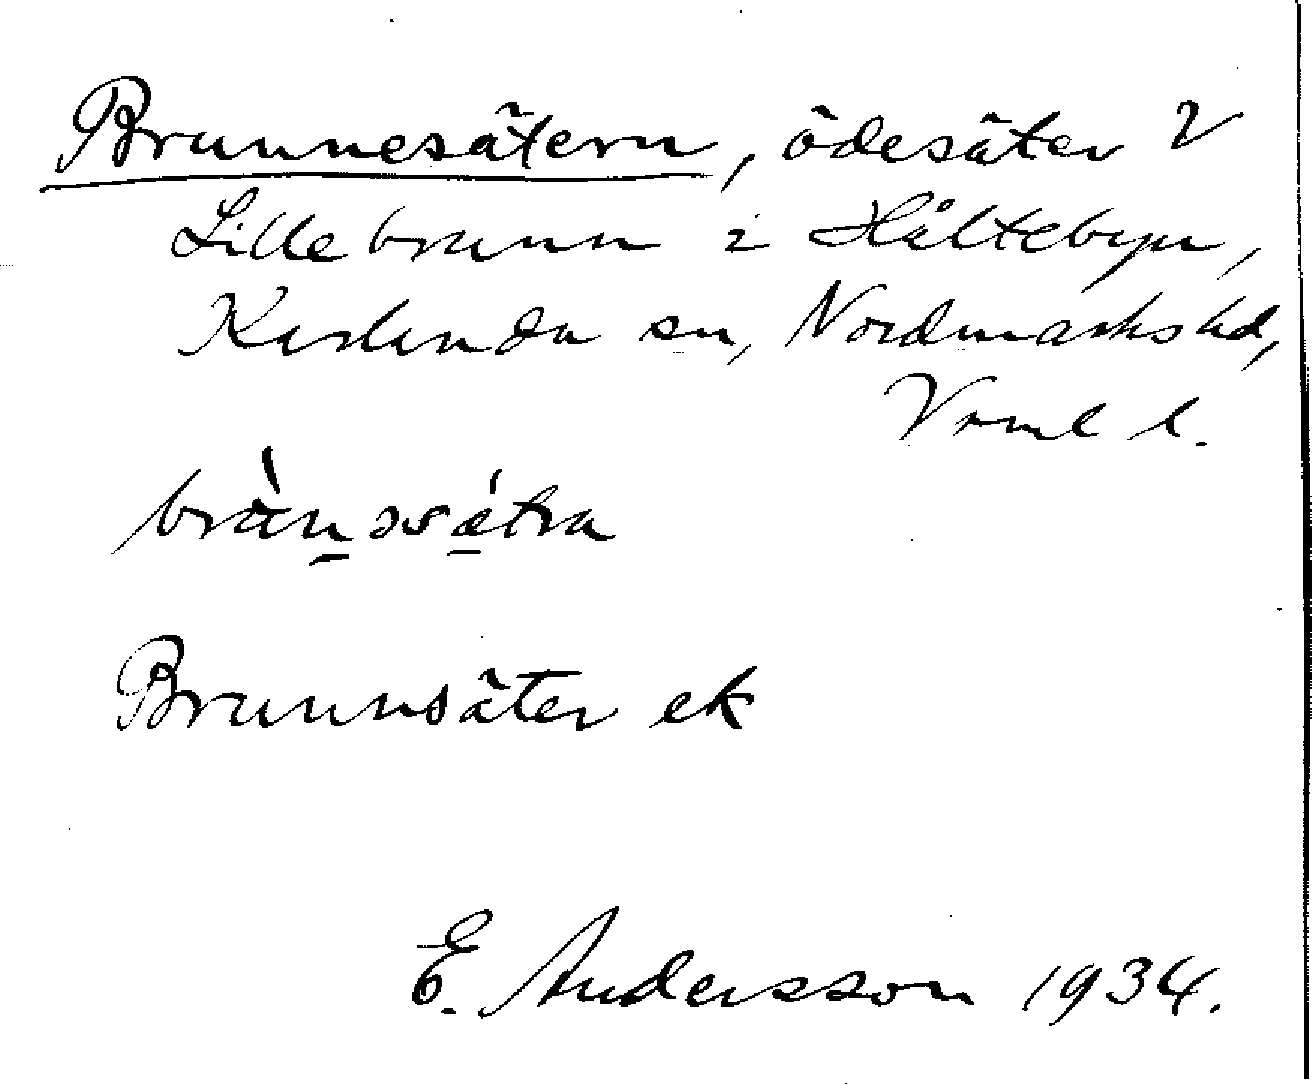 Brunnesätern, ödesäter V
Lillebrunn i Håltebyn,
Karlanda sn, Nordmarks hd,
Vrml l.
Brunnsäter ek
E. Andersson 1934.